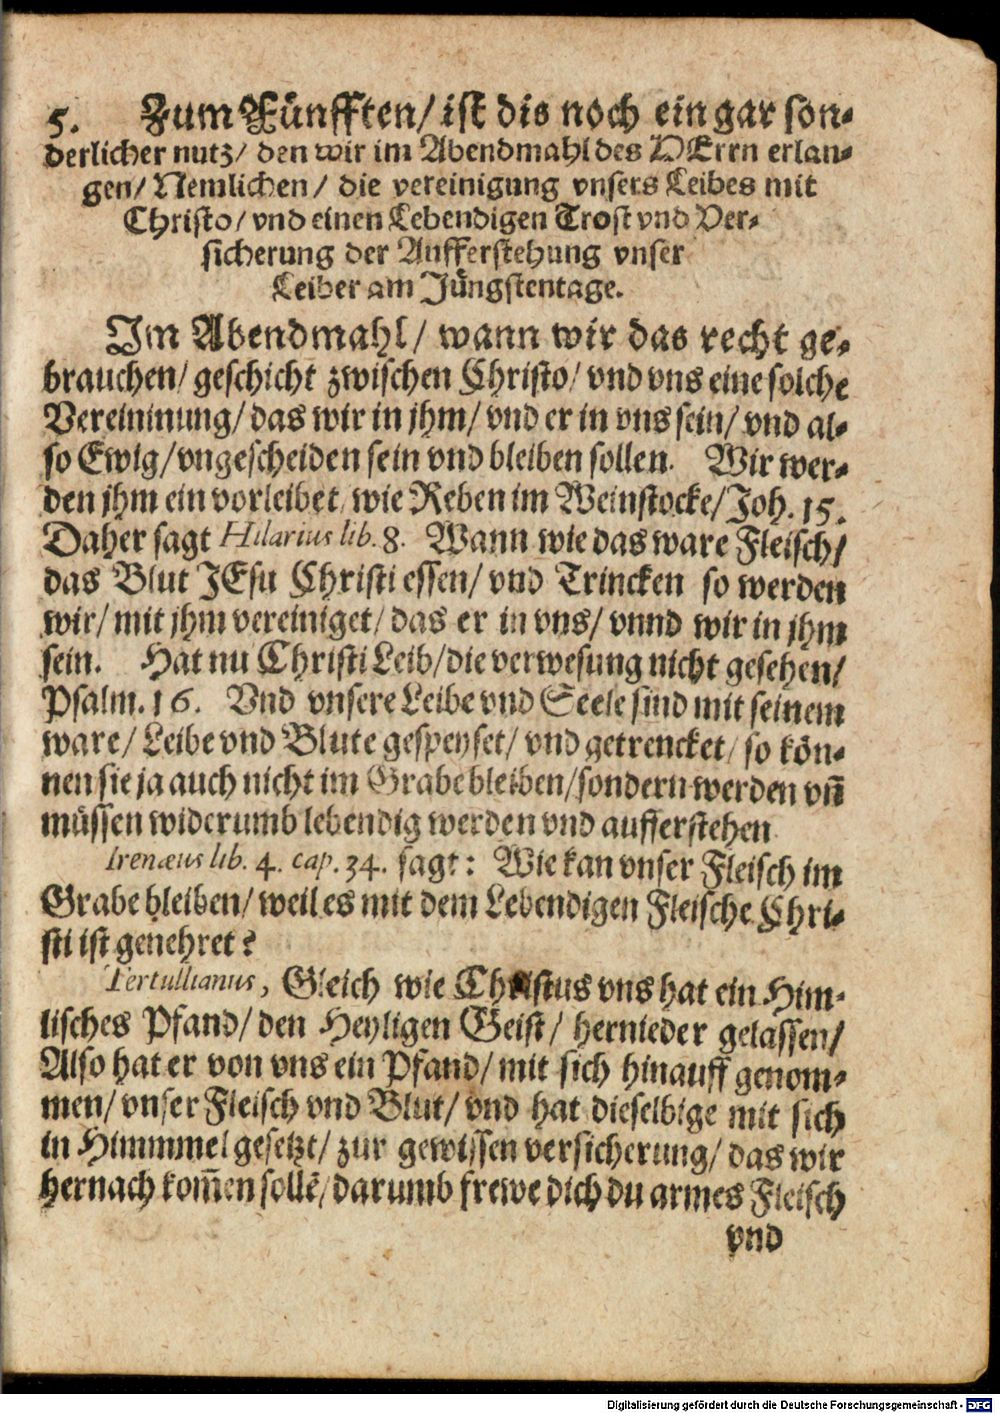 5. Zum Fünfften/ ist dis noch ein gar son-
derlicher nutz/ den wir im Abendmahl des HErrn erlan-
gen/ Nemlichen/ die vereinigung vnsers Leibes mit
Christo/ vnd einen Lebendigen Trost vnd Ver-
sicherung der Aufferstehung vnser
Leiber am Jüngstentage.
Im Abendmahl/ wann wir das recht ge-
brauchen/ geschicht zwischen Christo/ vnd vns eine solche
Vereininung/ das wir in jhm/ vnd er in vns sein/ vnd al-
so Ewig/ vngescheiden sein vnd bleiben sollen. Wir wer-
den jhm ein vorleibet/ wie Reben im Weinstocke/ Joh. 15.
Daher sagt Hilarius lib. 8. Wann wie das ware Fleisch/
das Blut JEsu Christi essen/ vnd Trincken so werden
wir/ mit jhm vereiniget/ das er in vns/ vnnd wir in jhm
sein. Hat nu Christi Leib/ die verwesung nicht gesehen/
Psalm. 16. Vnd vnsere Leibe vnd Seele sind mit seinem
ware/ Leibe vnd Blute gespeyset/ vnd getrencket/ so kön-
nen sie ja auch nicht im Grabe bleiben/ sondern werden vñ
müssen widerumb lebendig werden vnd aufferstehen
Irenæus lib. 4. cap. 34. sagt: Wie kan vnser Fleisch im
Grabe bleiben/ weil es mit dem Lebendigen Fleische Chri-
sti ist genehret?
Tertullianus, Gleich wie Christus vns hat ein Him-
lisches Pfand/ den Heyligen Geist/ hernieder gelassen/
Also hat er von vns ein Pfand/ mit sich hinauff genom-
men/ vnser Fleisch vnd Blut/ vnd hat dieselbige mit sich
in Himmmel gesetzt/ zur gewissen versicherung/ das wir
hernach kom̃en sollē/ darumb frewe dich du armes Fleisch
vnd
Digitalisierung gefördert durch die Deutsche Forschungsgemeinschaft - DFG